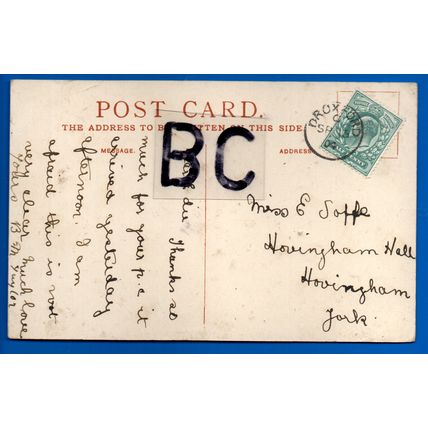 POST CARD.
THE ADDRESS TO BE WRITTEN ON THIS SIDE
MESSAGE.
ADDRESS
BC
Thanks so
much for your p.c it
arrived yesterday
afternoon. I am
afraid this is not
very clear much love
Miss E Soffe
Hovingham Hall
Hovingham
York.